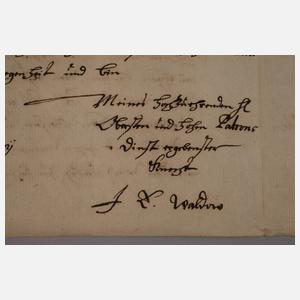 egenheit und bin
Meines hochzuehrenden H
Obersten und hohen Patrons
dienst ergebenster
Knecht
Waldow